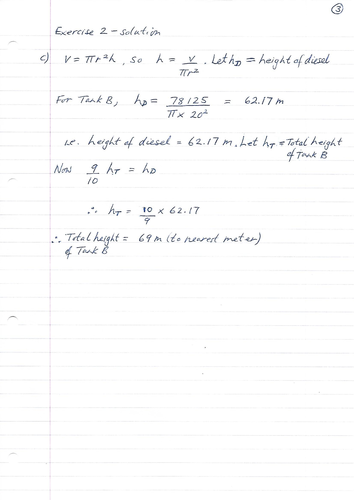 ③
Exercise 2 - solution
c) V = πr²h, so h = V/πr². Let hD = height of diesel
For Tank B, hD = 78125/(π x 20²) = 62.17 m
i.e. height of diesel = 62.17 m. Let hT = Total height of Tank B
Now 9/10 hT = hD
∴ hT = 10/9 x 62.17
∴ Total height = 69 m (to nearest meter)
of Tank B